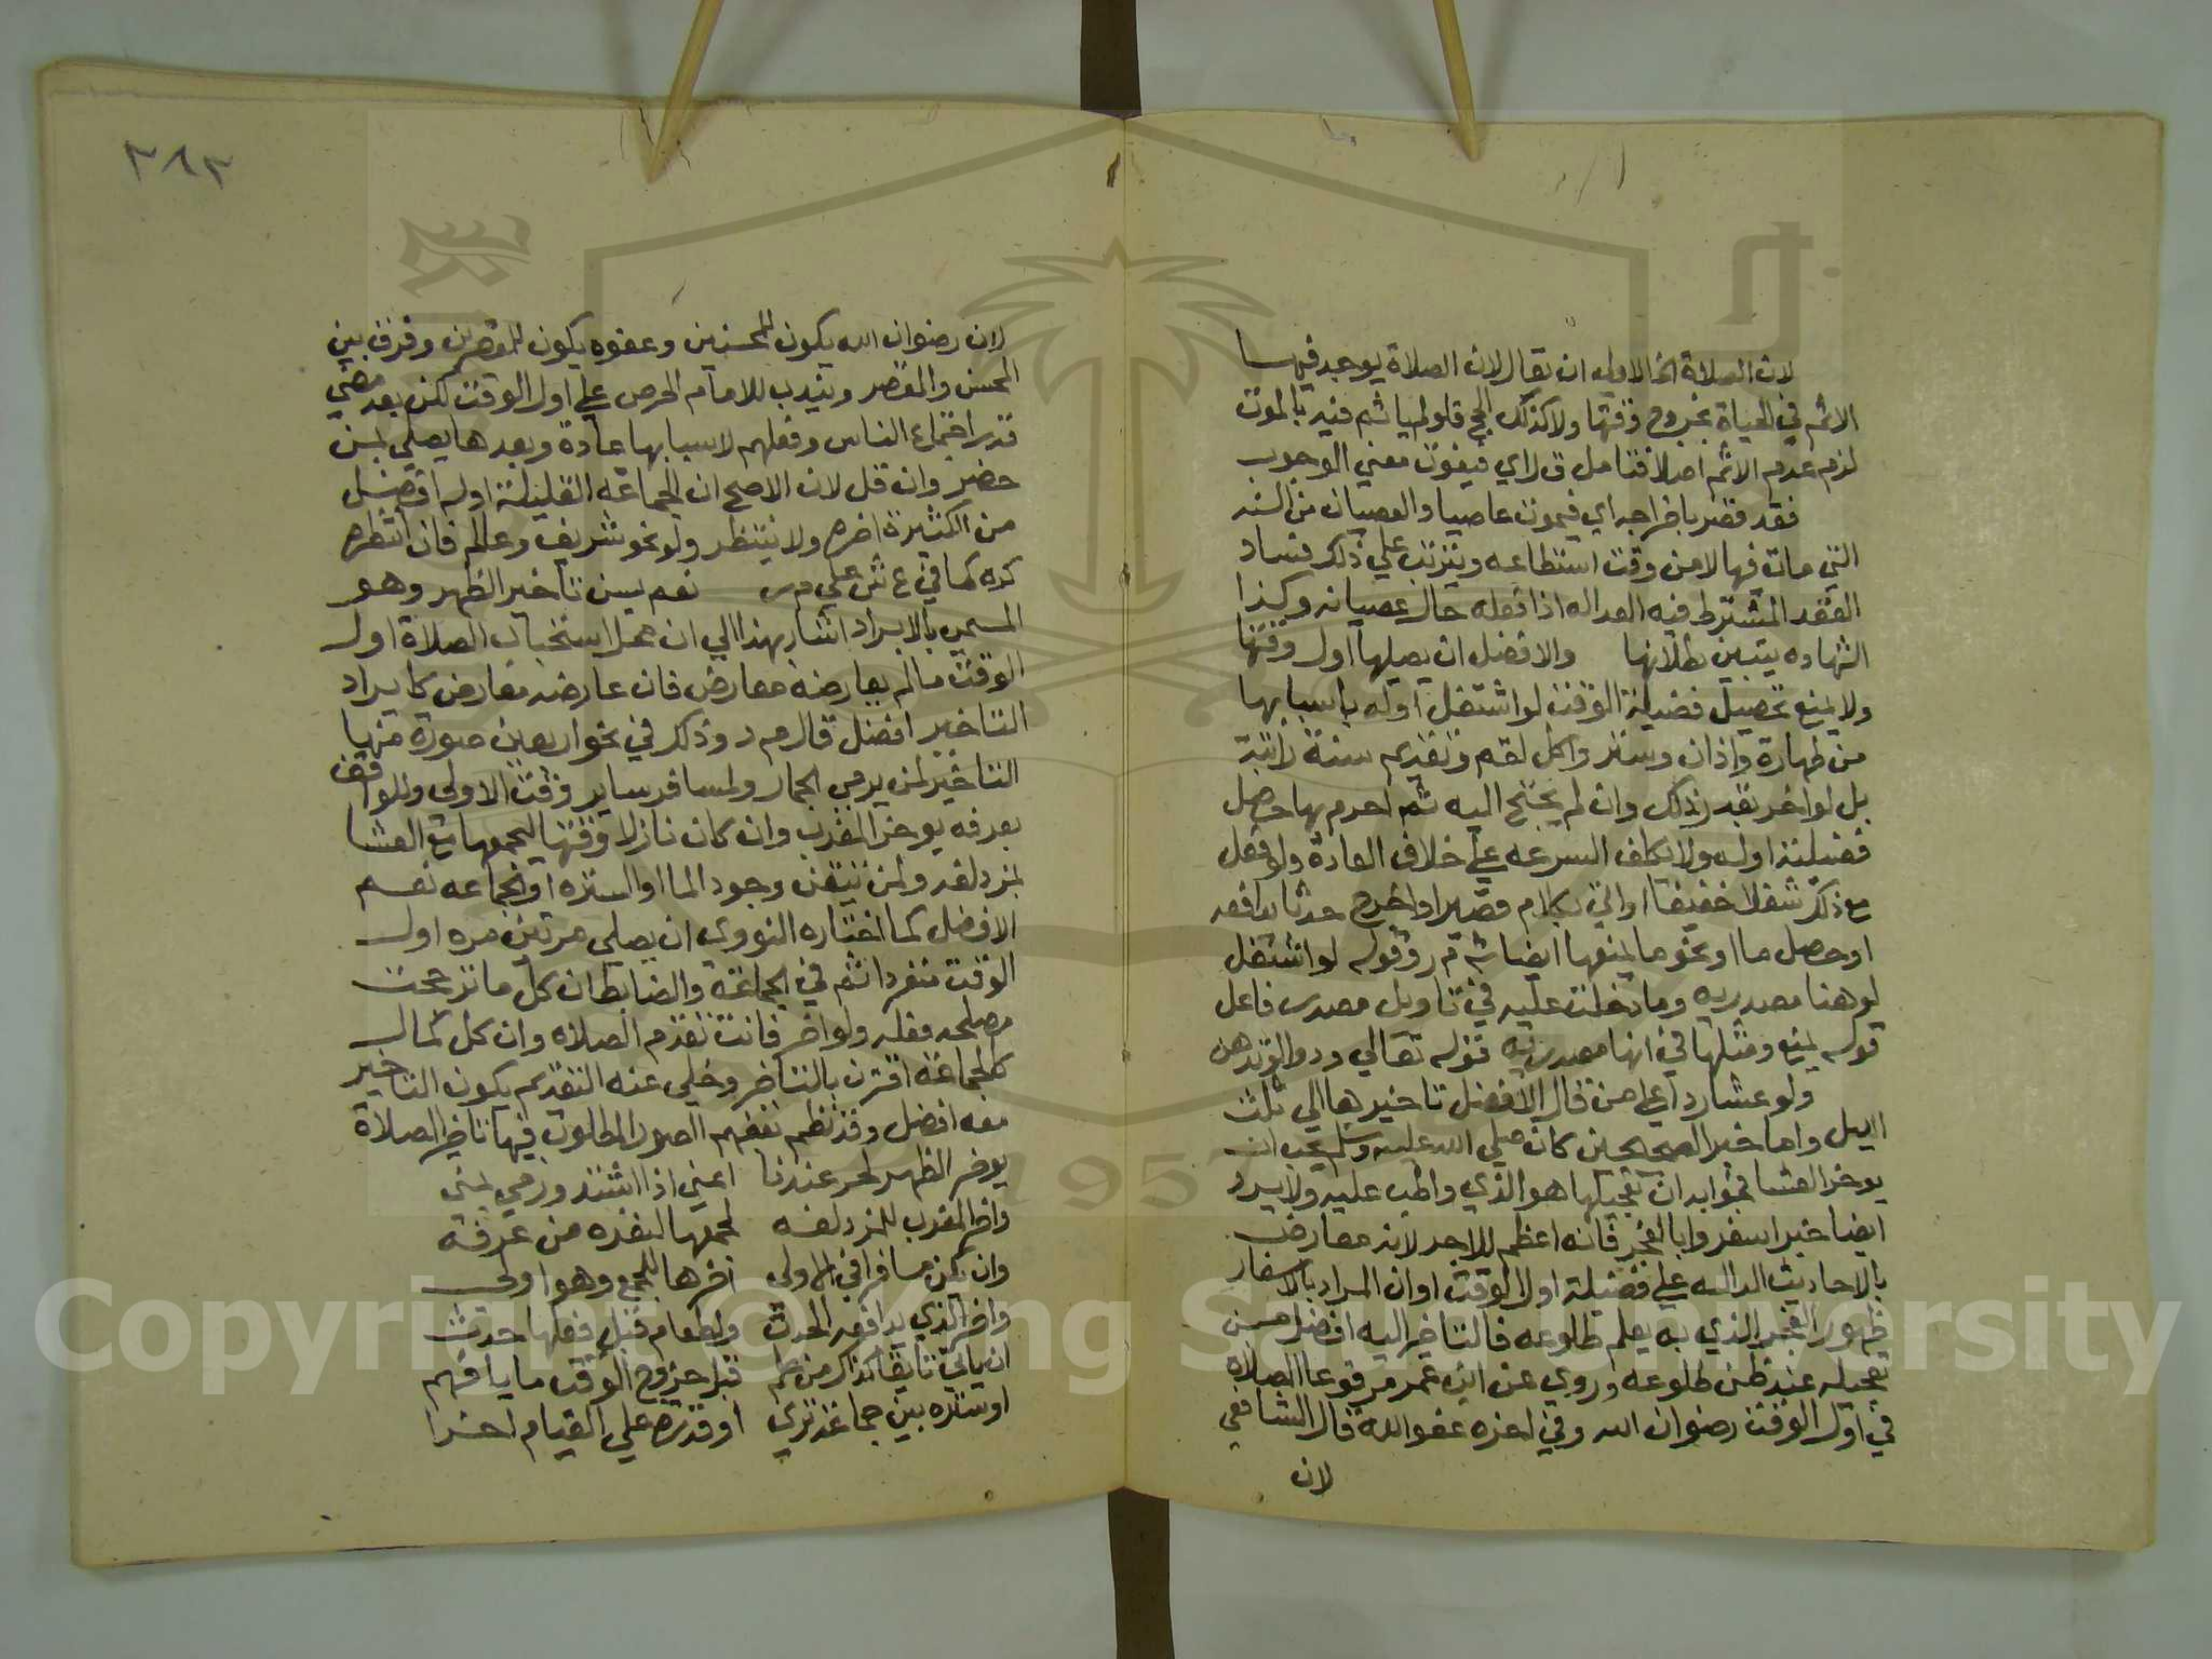 لان الصلاة الخ الاولى ان يقال لان الصلاة يوجد فيها
الاثم في الحياة بخروج وقتها ولا كذلك الحج فلو لم ياثم فيه بالموت
لزم عدم الاثم اصلا فتامل ق ل اي فيفوت معني الوجوب
فقد قصر باخراجه اي فيموت عاصيا والعصيان من السنه
التي مات فيها لا من وقت استطاعه ويترتب علي ذلك فساد
العقد المشترط فيه العداله اذا فعله حال عصيانه وكذا
الشهاده يتبين بطلانها والافضل ان يصليها اول وقتها
ولا يمنع تحصيل فضيلة الوقت لو اشتغل اوله باسبابها
من طهارة واذان وستر واكل لقم وتقديم سنة راتبة
بل لو اخر بقدر ذلك وان لم يحتج اليه ثم احرم بها حصل
فضيلة اوله ولا يكلف السرعه علي خلاف العادة ولو فعل
مع ذلك شغلا خفيفا او اتي بكلام قصير او اخرج حدثا يدافعه
او حصل ما او نحو ما لم يمنعها ايضا شرح م ر وقوله لو اشتغل
لو هنا مصدريه وما دخلت عليه في تاويل مصدر فاعل
قوله يمنع ومثلها في انها مصدريه قوله تعالي ودوا لو تدهن
ولو عشا ردا علي من قال الافضل تاخيرها الي ثلث
الليل واما خبر الصحيحين كان صلي الله عليه وسلم يحب ان
يوخر العشا فجوابه ان تعجيلها هو الذي واظب عليه ولا يرد
ايضا خبر اسفروا بالفجر فانه اعظم للاجر لانه معارض
بالاحاديث الداله علي فضيلة اول الوقت او ان المراد بالاسفار
ظهور الفجر الذي به يعلم طلوعه فالتاخير اليه افضل من
تعجيله عند ظن طلوعه وروي عن ابن عمر مرفوعا الصلاه
في اول الوقت رضوان الله وفي اخره عفو الله قال الشافعي
لان
٣٨٣
لان رضوان الله يكون للمحسنين وعفوه يكون للمقصرين وفرق بين
المحسن والمقصر ويندب للامام الحرص علي اول الوقت لكن بعد مضي
قدر اجتماع الناس وفعلهم لاسبابها عادة وبعدها يصلي بمن
حضر وان قل لان الاصح ان الجماعه القليلة اوله افضل
من الكثيرة اخره ولا ينتظر ولو نحو شريف وعالم فان انتظره
كره كما في ع ش علي م ر نعم يسن تاخير الظهر وهو
المسمي بالابراد اشار بهذا الي ان محل استحباب الصلاة اول
الوقت ما لم يعارضه معارض فان عارضه معارض كابراد
التاخير افضل قال م د وذكر في نحو اربعين صورة منها
التاخير لمن يرمي الجمار ولمسافر ساير وقت الاولي وللواقف
بعرفه يوخر المغرب وان كان نازلا وقتها ليجمعها مع العشا
بمزدلفه ولمن تيقن وجود الما او الستره او الجماعه نعم
الافضل كما اختاره النووي ان يصلي مرتين مره اول
الوقت منفردا ثم في الجماعة والضابط ان كل ما ترجحت
مصلحه فعله ولو اخر فاتت تقدم الصلاه وان كل كمال
كالجماعة اقترن بالتاخر وخلي عنه التقديم يكون التاخير
معه افضل وقد نظم بعضهم الصور المطلوب فيها تاخير الصلاة
يوخر الظهر لحر عندنا اعني اذا اشتد ورمي بمني
واخر المغرب للمزدلفه لجمعها النفره من عرفة
وان يكن مسافرا في الاولي اخرها للجمع وهو اولي
واخر الذي يدافع الحدث ولطعام قبل فعلها حدث
ان ياتي تايقا كذاكر من علم قبل خروج الوقت
او ستره بين جماعة تري او قدره علي القيام اخرا